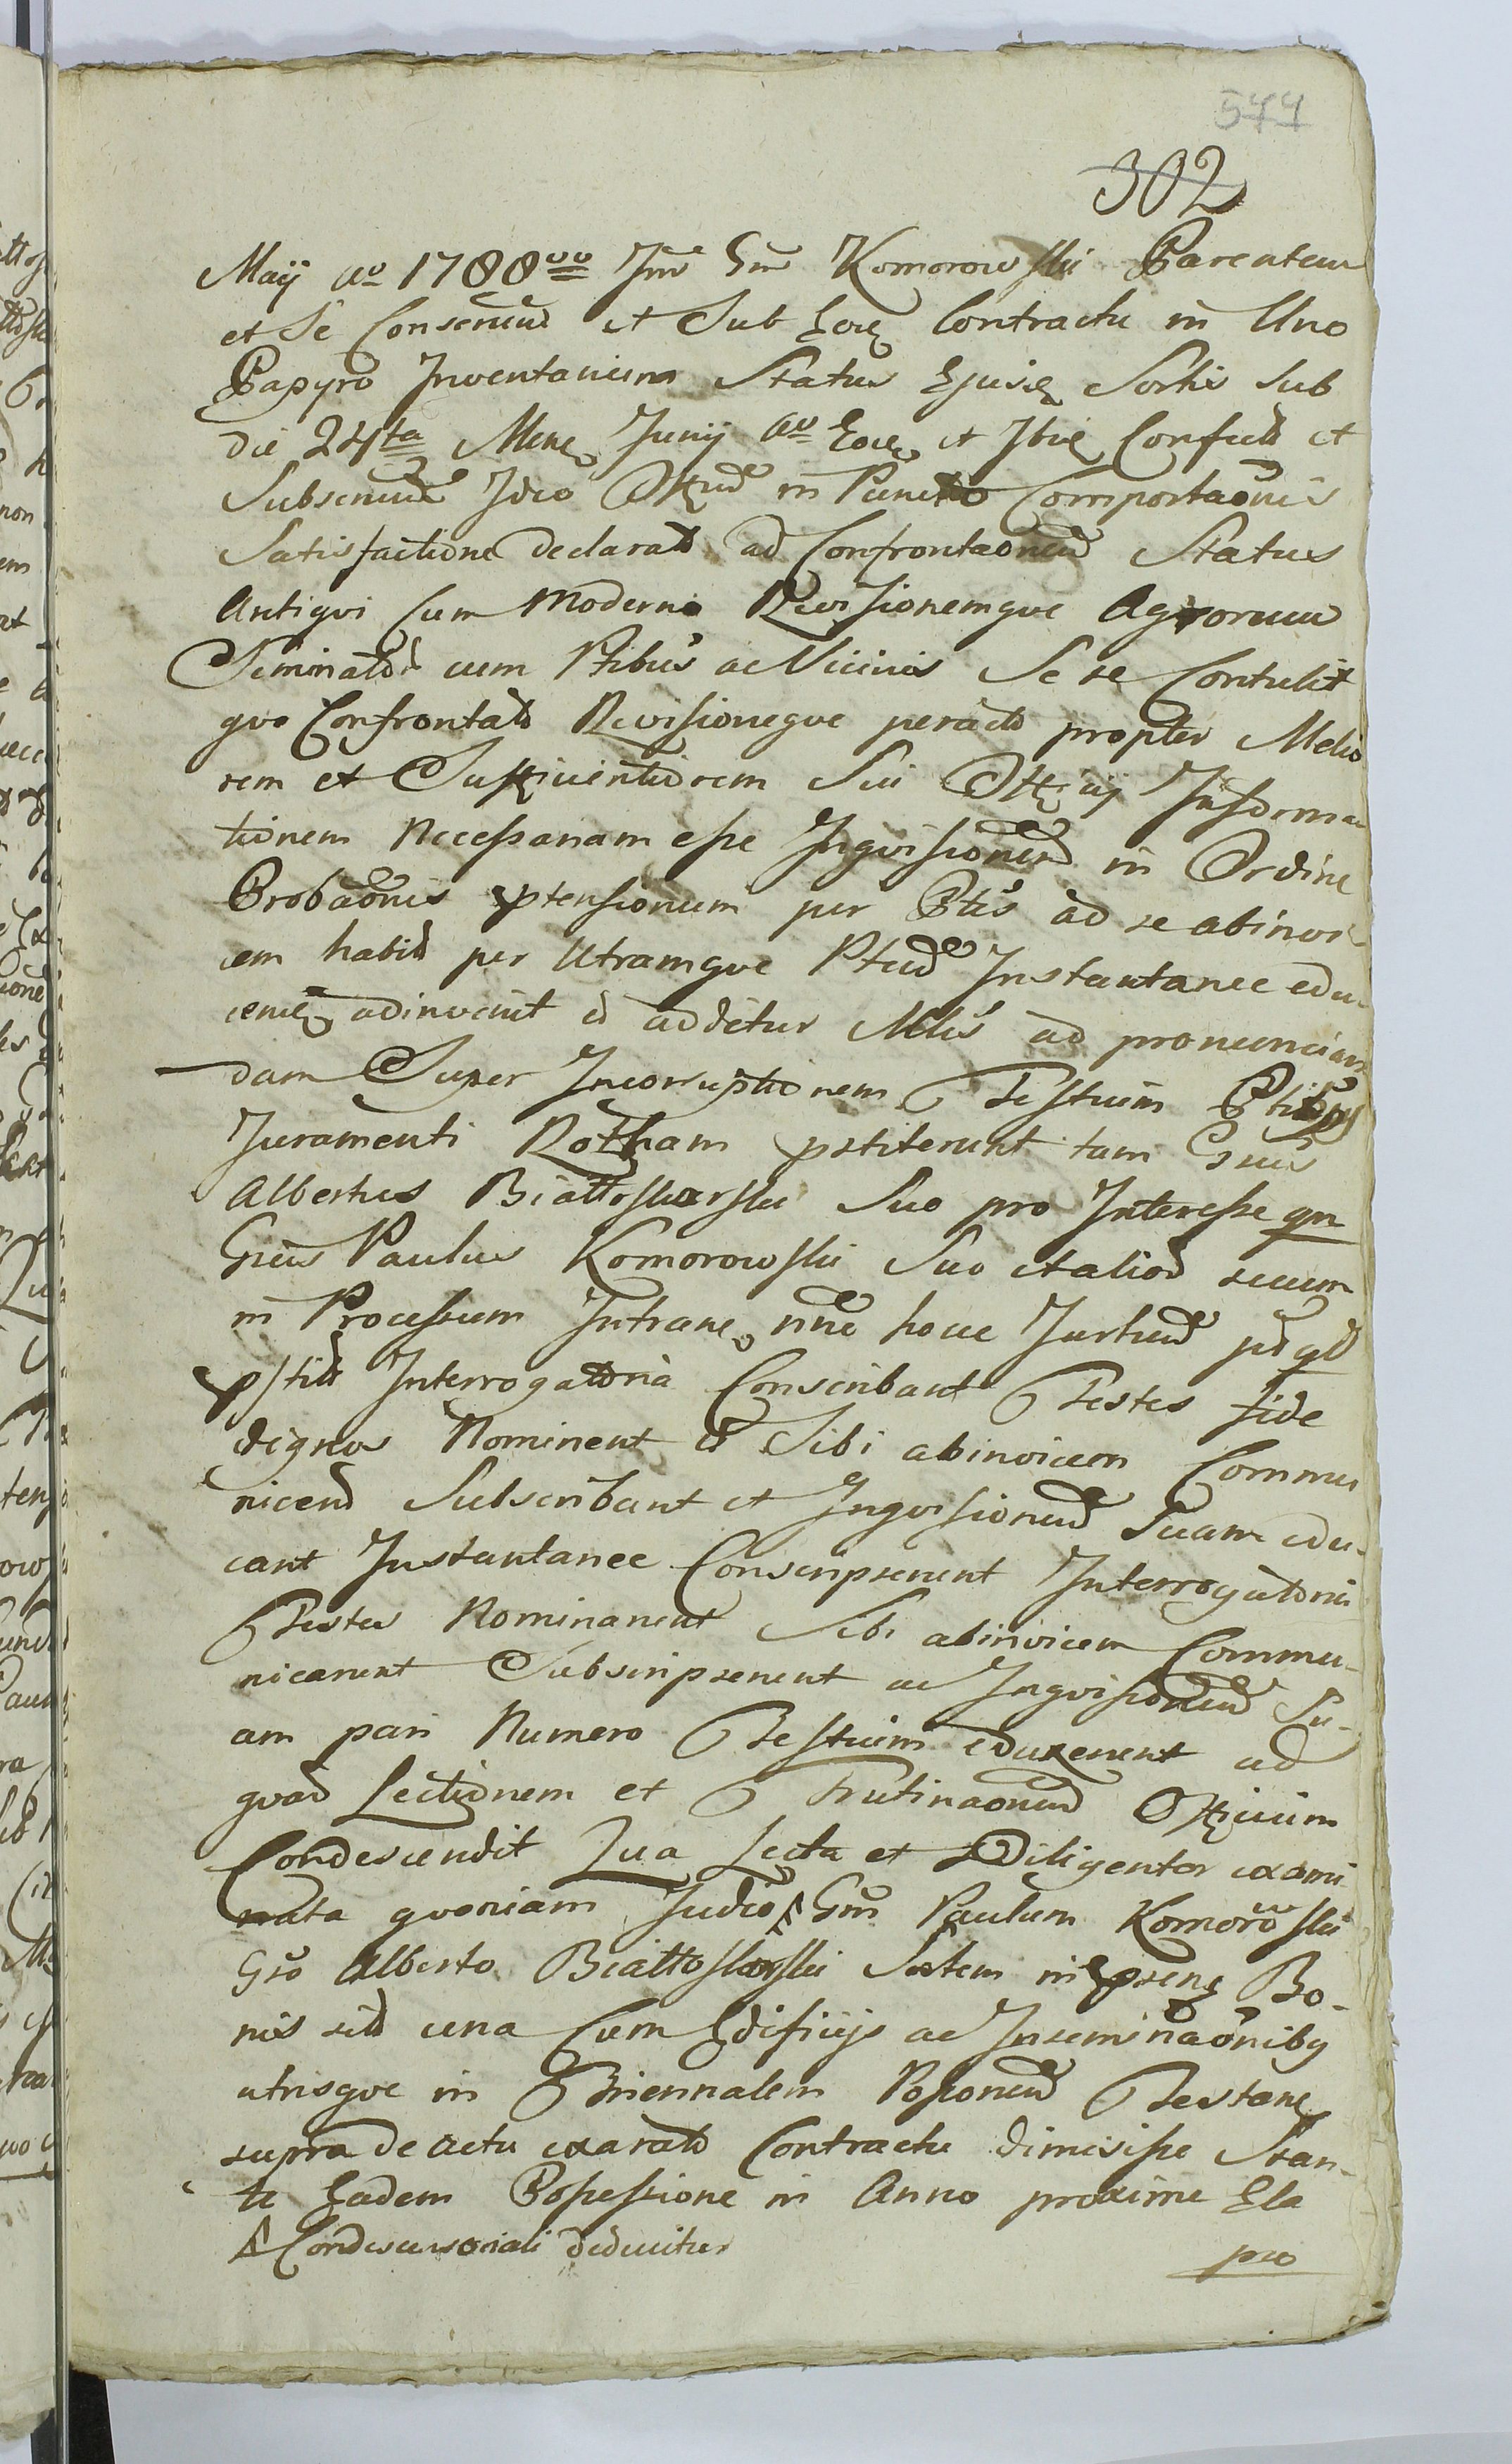 577
302
Maÿ ao 1788vo Komorowski Parentem
et Se Conscriptũ et Sub Eod Contractu in Uno
Papyro Inventarium Status Ejusd Sortis sub
die 24ta Mens Junij ao Eod et Ibid Confectũ et
Subscriptũ Ideo Offũ in Puncto Comportaõnis
Satisfactione declarata ad Confrontaõnem Status
Antiqui Cum Moderno Revisionemque Agrorum
Seminator cum Ptibus ac Vicinis Se se Contulit
quo Confrontato Revisioneque peracta propter Melio
rem et Sufficientiorem Sui Officij Informa
tionem Necessariam esse Inquisitionem in Ordine
Probaõnis ptensionum per Ptes ad se abinvi
cem habit per Utramque Ptem Instantanee edu-
cend adinvenit et additur Mltis ad pronuncian
dam Super Incorruptionem Testium Ptibus
Juramenti Rotham pstiterunt tam Gnus
Albertus Białłoskorski Suo pro Interesse qm
Gnus Paulus Komorowski Suo et aliorũ secum
in Processum Intran nne hocce Jurtum
pstito Interrogatoria Conscribant Testes fide
dignos Nominent et Sibi abinvicem Commu
nicend Subscribant et Inquisitionem Suam edu-
cant Instantanee Conscripserunt Interrogatoria
Testes Nominarunt Sibi abinvicem Commu-
nicarunt Subscripserunt ac Inquisitionem Su-
am pari Numero Testium eduxerunt ad
quar Lectionem et Trutinaõnem Officium
Condescendit Qua Lecta et Diligenter exami
nata quoniam Judicio ∆ Gnm Paulum Komorowski
Gso Alberto Białłoskorski Sortem in psens Bo-
nis sit una Cum Edificijs ac Inseminaõnibq
utrisque in Triennalem Possionem Testan
supra de actu exarato Contractu dimisisse Stan-
te Eadem Possessione in Anno proxime Ela
∆ Condescensoriali deducitur
pso